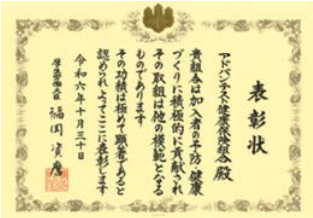 表彰状
アドバンテスト健康保険組合 殿
貴組合は加入者の予防・健康
づくりに積極的に貢献され
その取組は他の模範となる
ものであります
その功績は極めて顕著であると
認められよってここに表彰します
令和六年十月三十日
厚生労働大臣 福岡資麿